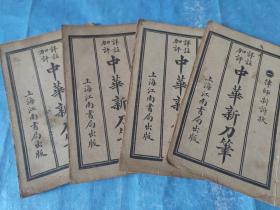 詳註
加評
中華新刀
上海江南書局出版
詳註
加評
中華新刀筆
上海江南書局出版
詳註
加評
中華新刀
上海江南書局出版
律師
詳註
加評
中華新刀筆
上海江南書局出版